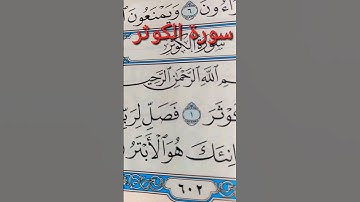 ءُونَ ٦ وَيَمْنَعُونَ ٱ
سورة الكوثر
سُورَةُ الكَوْثَرِ
مِ ٱللَّهِ ٱلرَّحْمَٰنِ ٱلرَّحِي
وْثَرَ ١ فَصَلِّ لِرَبِّ
انِئَكَ هُوَ ٱلْأَبْتَرُ
٦٠٢